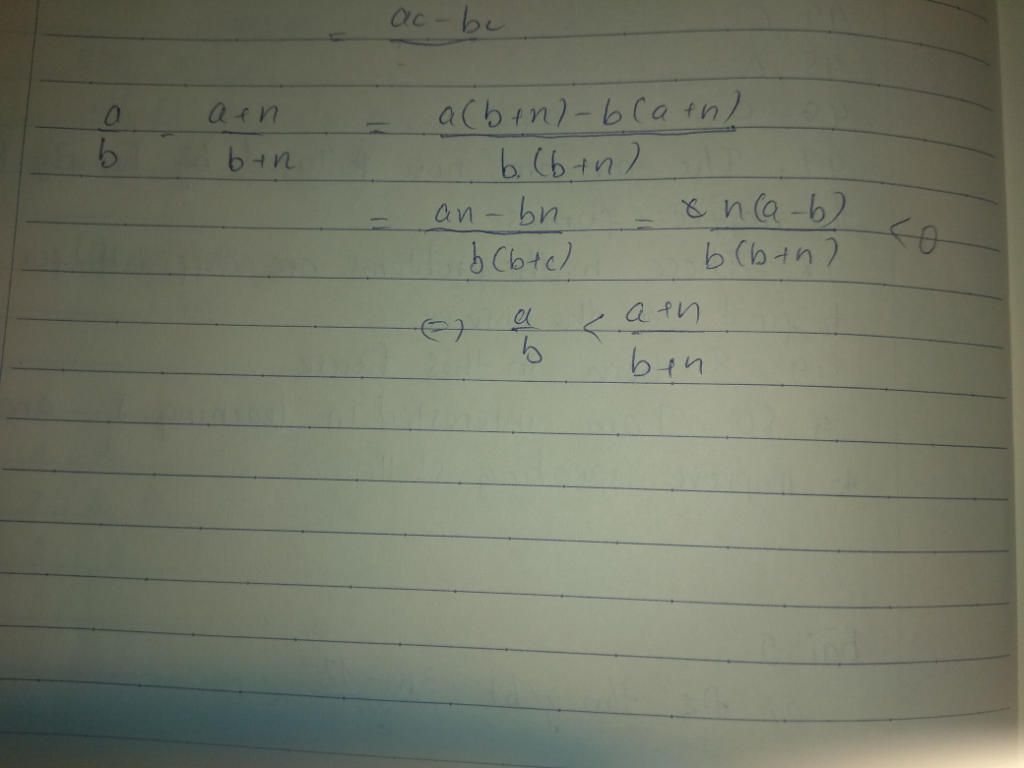 = ac - bc
a/b - a+n/b+n = a(b+n) - b(a+n)/b.(b+n)
= an - bn/b(b+c) = n(a-b)/b(b+n) < 0
(=) a/b < a+n/b+n